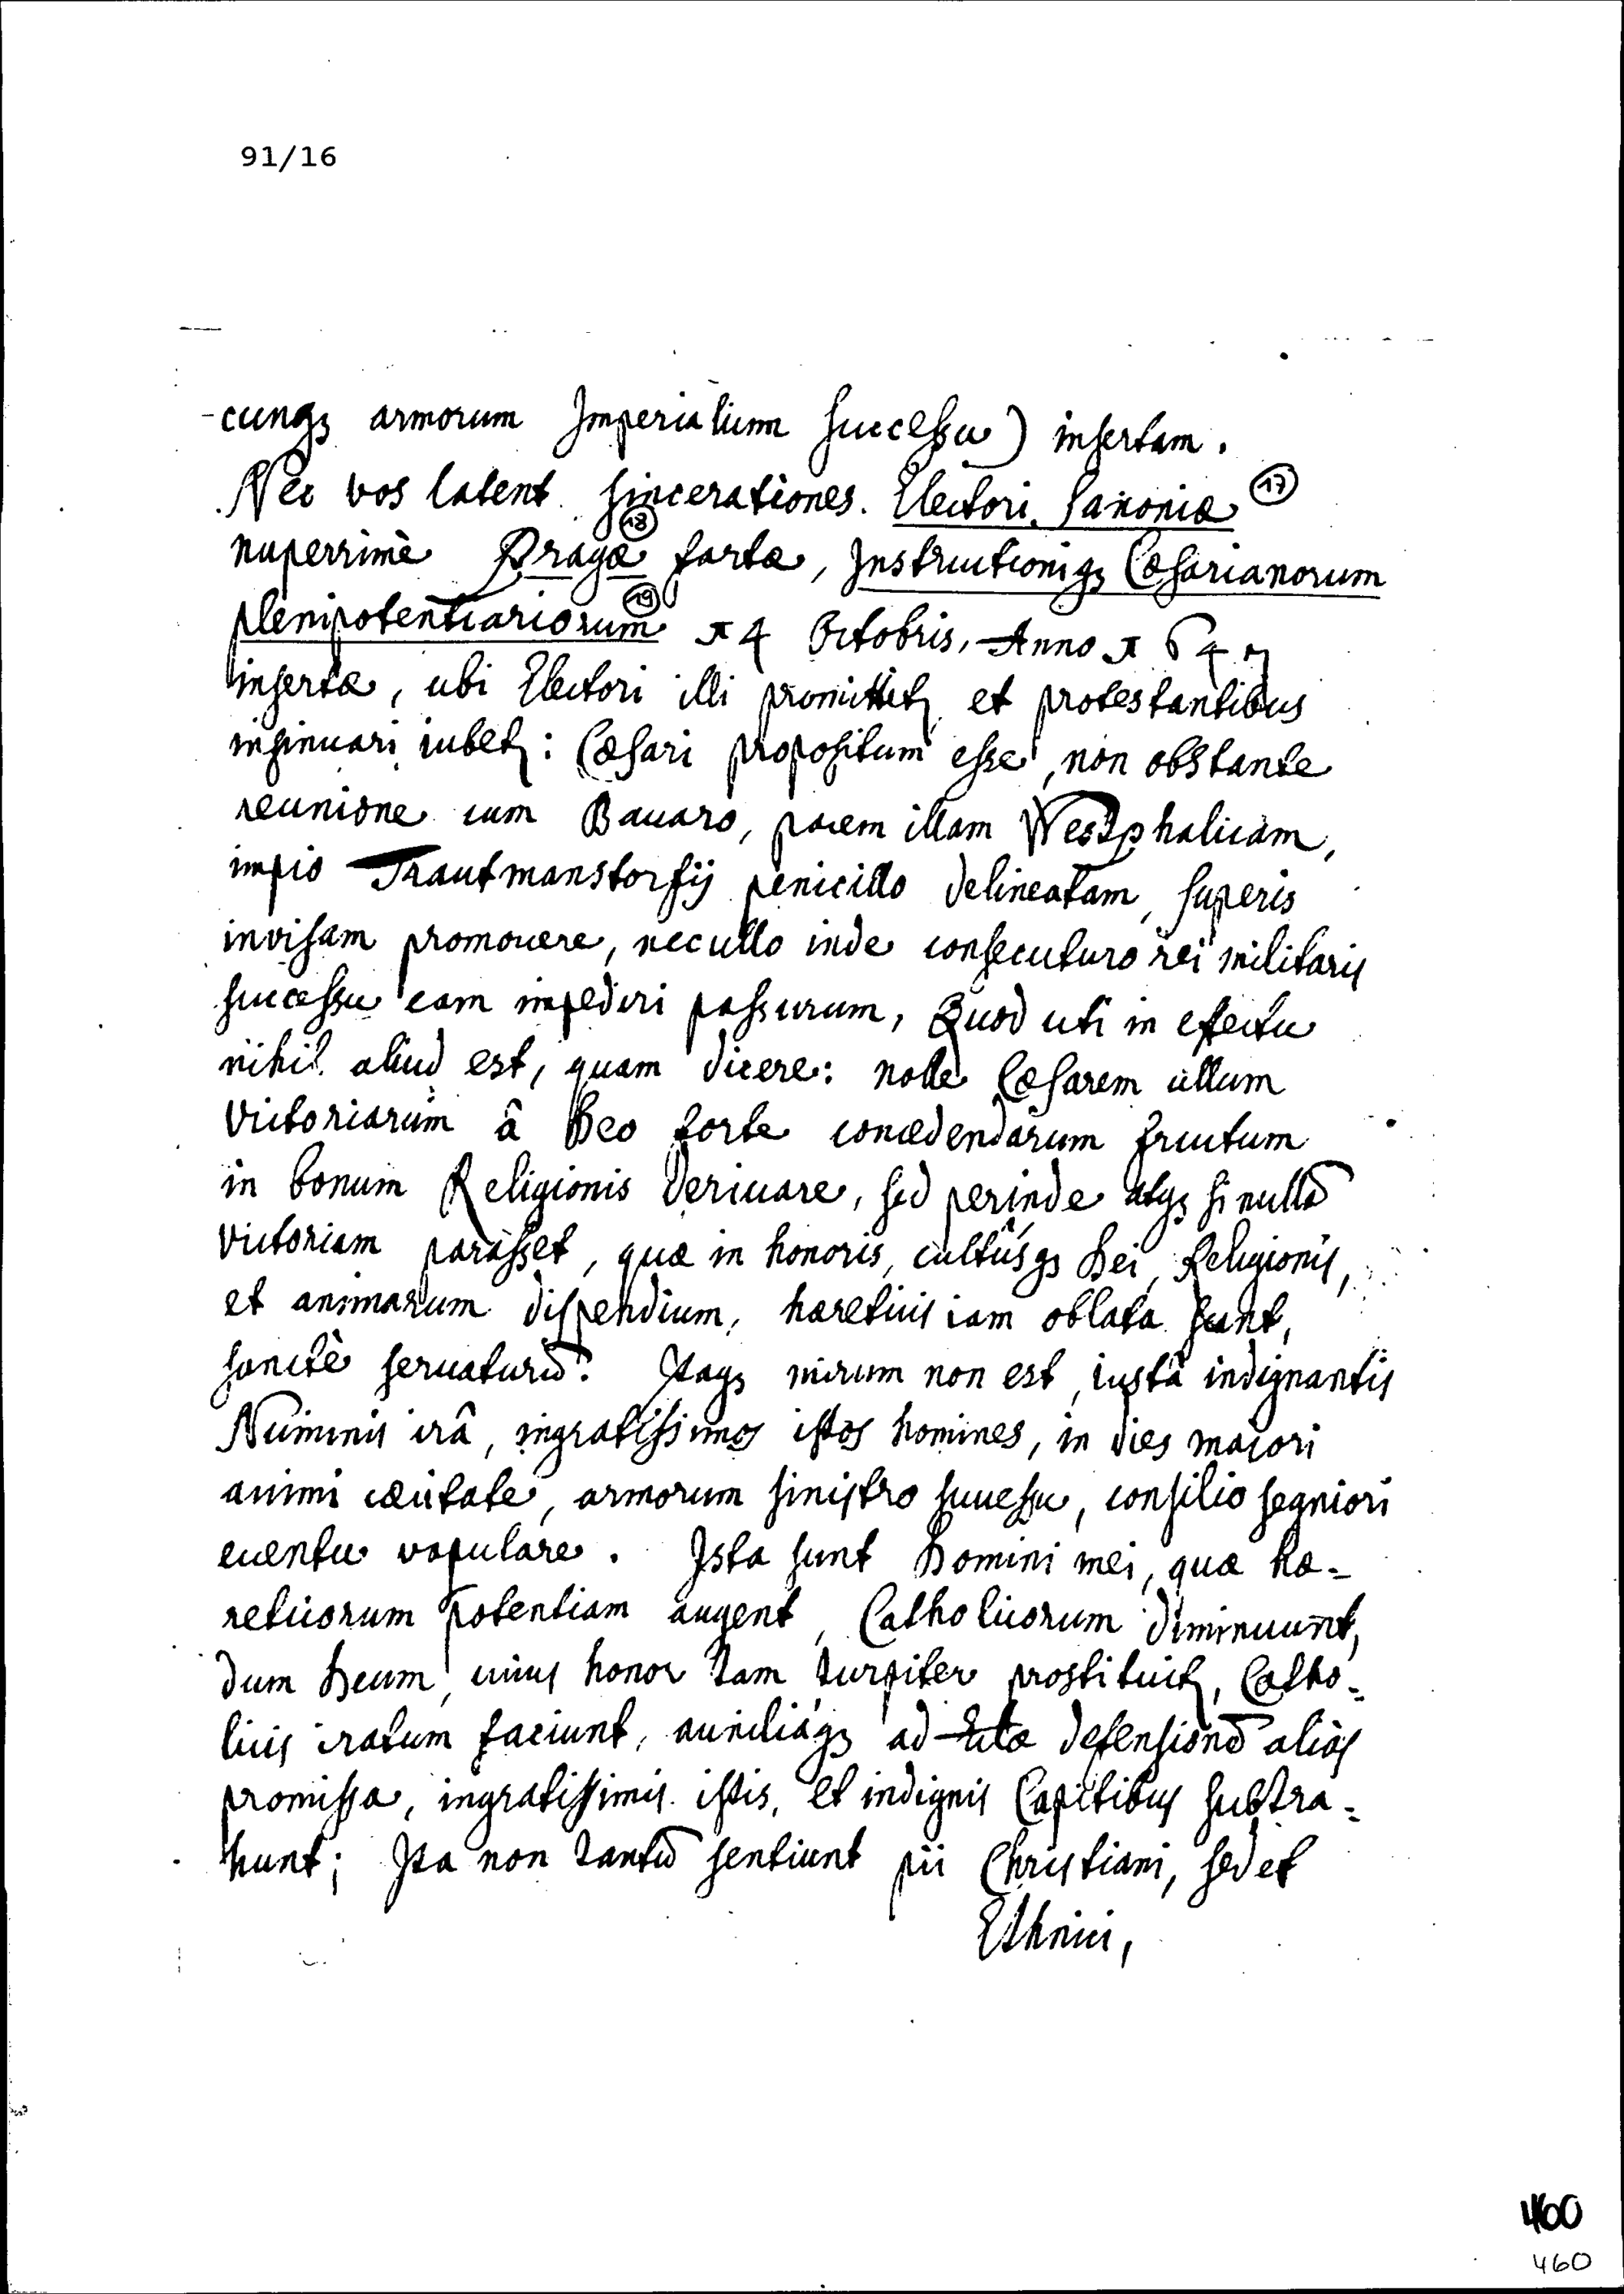 91/16
-cunqꝫ armorum Imperialium successu) insertam.
Nec vos latent sincerationes. Electori Saxoniæ ⑰
nuperrimè Pragæ ⑱ factæ, Instructioniqꝫ Cæsarianorum
plenipotentiariorum ⑲ 14 Octobris, Anno 1647
insertæ, ubi Electori illi promittitꝫ et protestantibus
insinuari iubetꝫ: Cæsari propositum esse, non obstante
reunione cum Bauaro, pacem illam Westphalicam,
impio Trautmanstorfij penicillo delineatam, superis
invisam promouere, nec ullo inde consecuturo rei militaris
successu eam impediri passurum, Quod uti in effectu
nihil aliud est, quam dicere: nolle Cæsarem ullum
victoriarum â Deo forte concedendarum fructum
in bonum Religionis deriuare, sed perinde atqꝫ si nullā
victoriam parasset, quæ in honoris, cultûsqꝫ Dei, Religionis,
et animarum dispendium, hæreticis iam oblata sunt,
sanctè seruaturū. Itaqꝫ mirum non est, iustâ indignantis
Numinis irâ, ingratissimos istos homines, in dies maiori
animi cæcitate, armorum sinistro successu, consilio segniori
euentu vapulare. Ista sunt Domini mei, quæ hæ-
reticorum potentiam augent, Catholicorum diminuunt,
dum Deum, cuius honor tam turpiter prostituitꝫ, Catho-
licis iratum faciunt, auxiliáqꝫ ad defensionē aliàs
promissa, ingratissimis istis, et indignis Capitibus subtra-
hunt; Ita non tantū sentiunt pii Christiani, sed et
Ethnici,
460
460